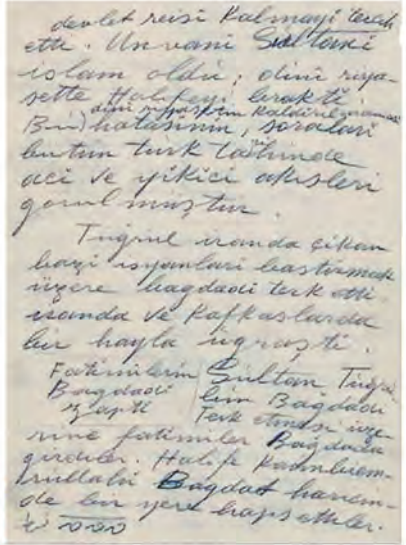 devlet reisi kalmayi terch
etti. Unvani Sultani
islam oldu; dini riya-
sette Halifeyi bırakti
dini riyasetin kaldirilmamasi
Bu hatasinin, soralari
butun turk tarihinde
aci ve yikici akisleri
gorulmuştur.
Tuğrul iranda çikan
bazi isyanlari bastirmak
üzere bagdadi terk etti
iranda ve Kafkaslarda
bir hayla ügraşti.
Fatimilerin
Bagdadi
zapti
Sultan Tuğru-
lun Bağdadi
Terk etmesi üze-
rine fatimiler Bağdada
girdiler. Halife Kaimbiem-
rullahi Bagdat haricin-
de bir yere hapsettiler.